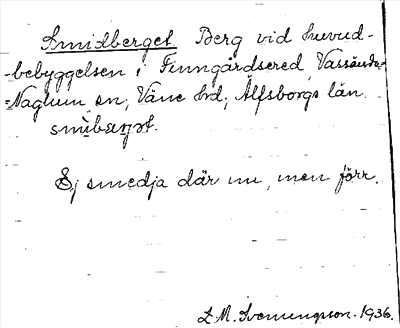 Smidberget Berg vid huvud-
-bebyggelsen i Finngårdsered, Vassända-
=Naglum sn, Väne hrd, Älfsborgs län.
smìbærjət.
Ej smedja där nu, men förr.
L.M. Svenungson. 1936.